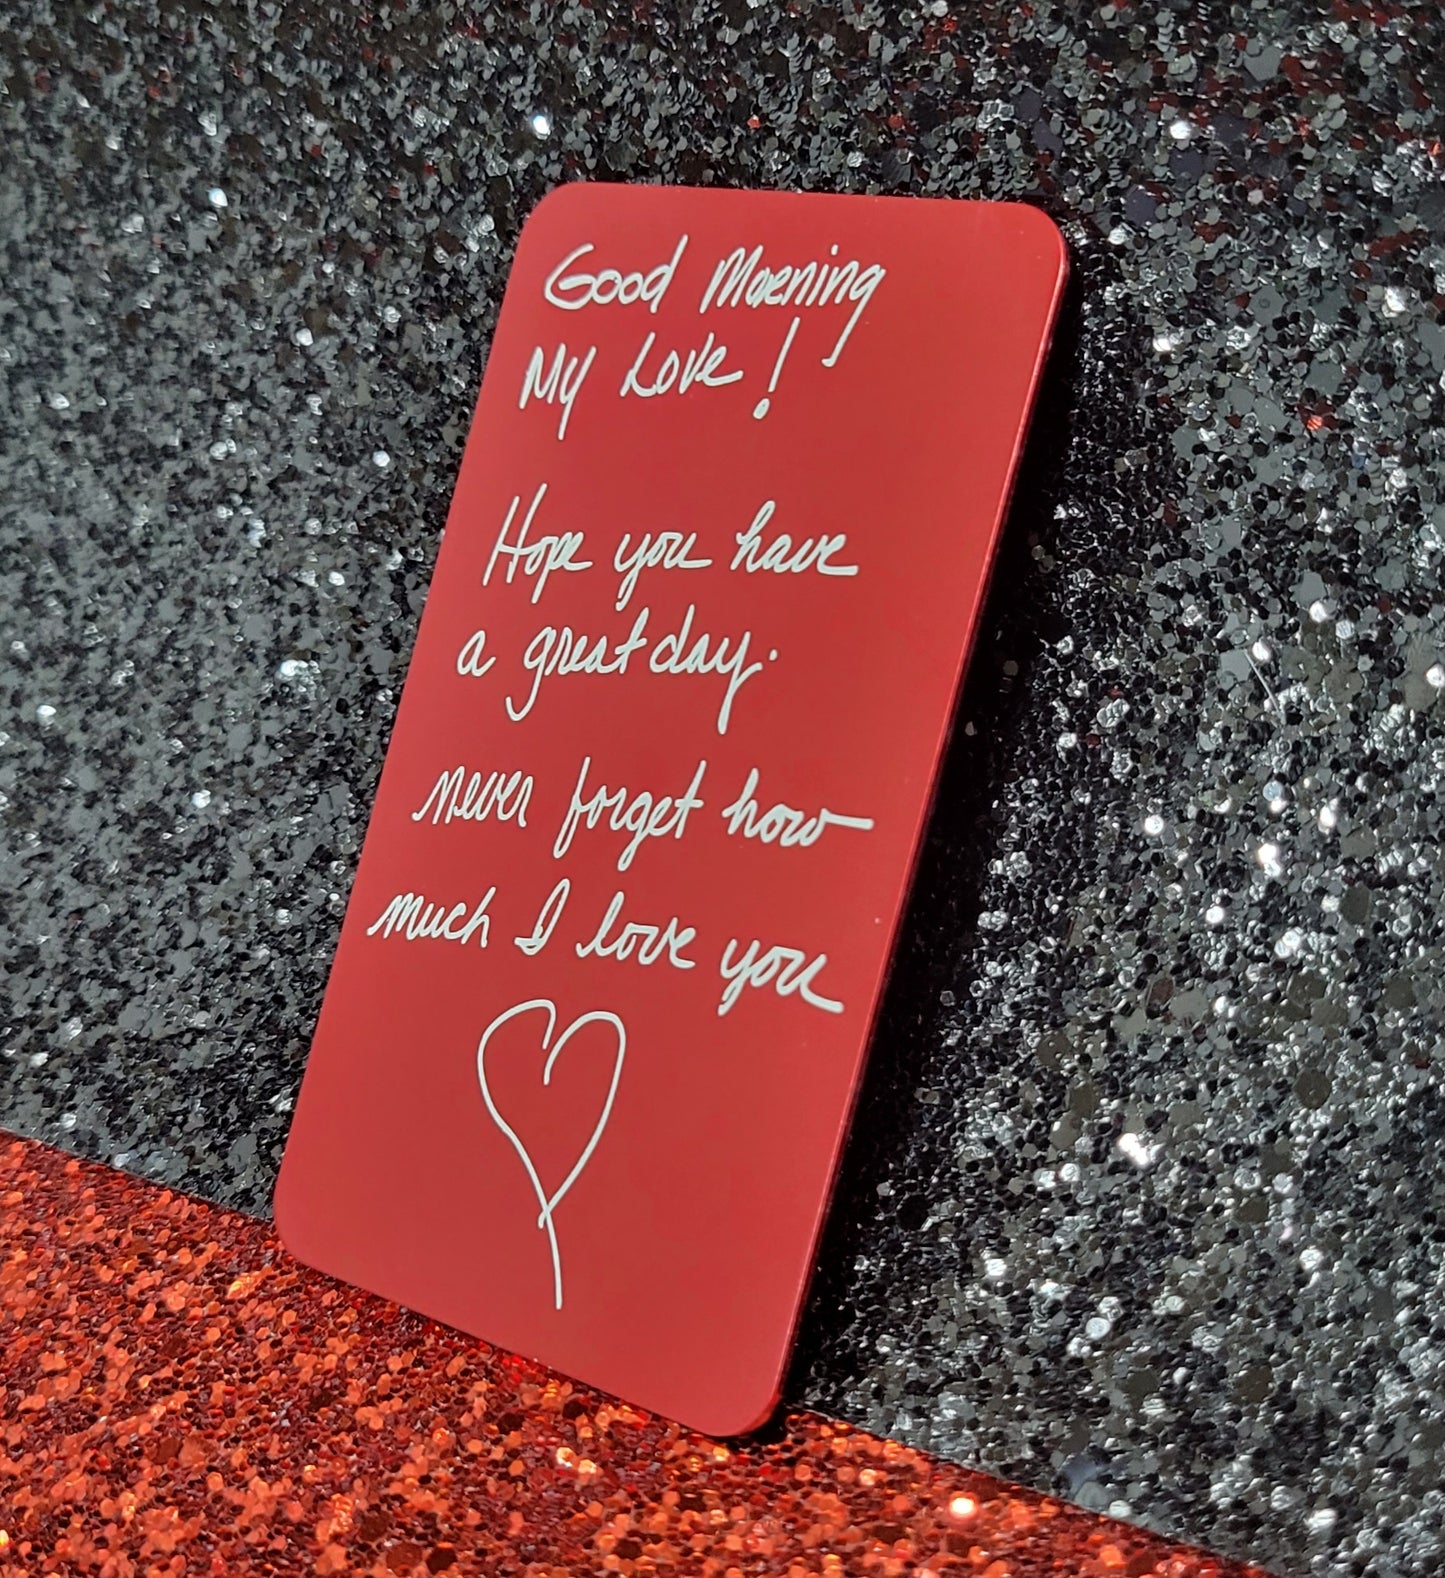 Good Morning
My Love!
Hope you have
a great day.
never forget how
much I love you